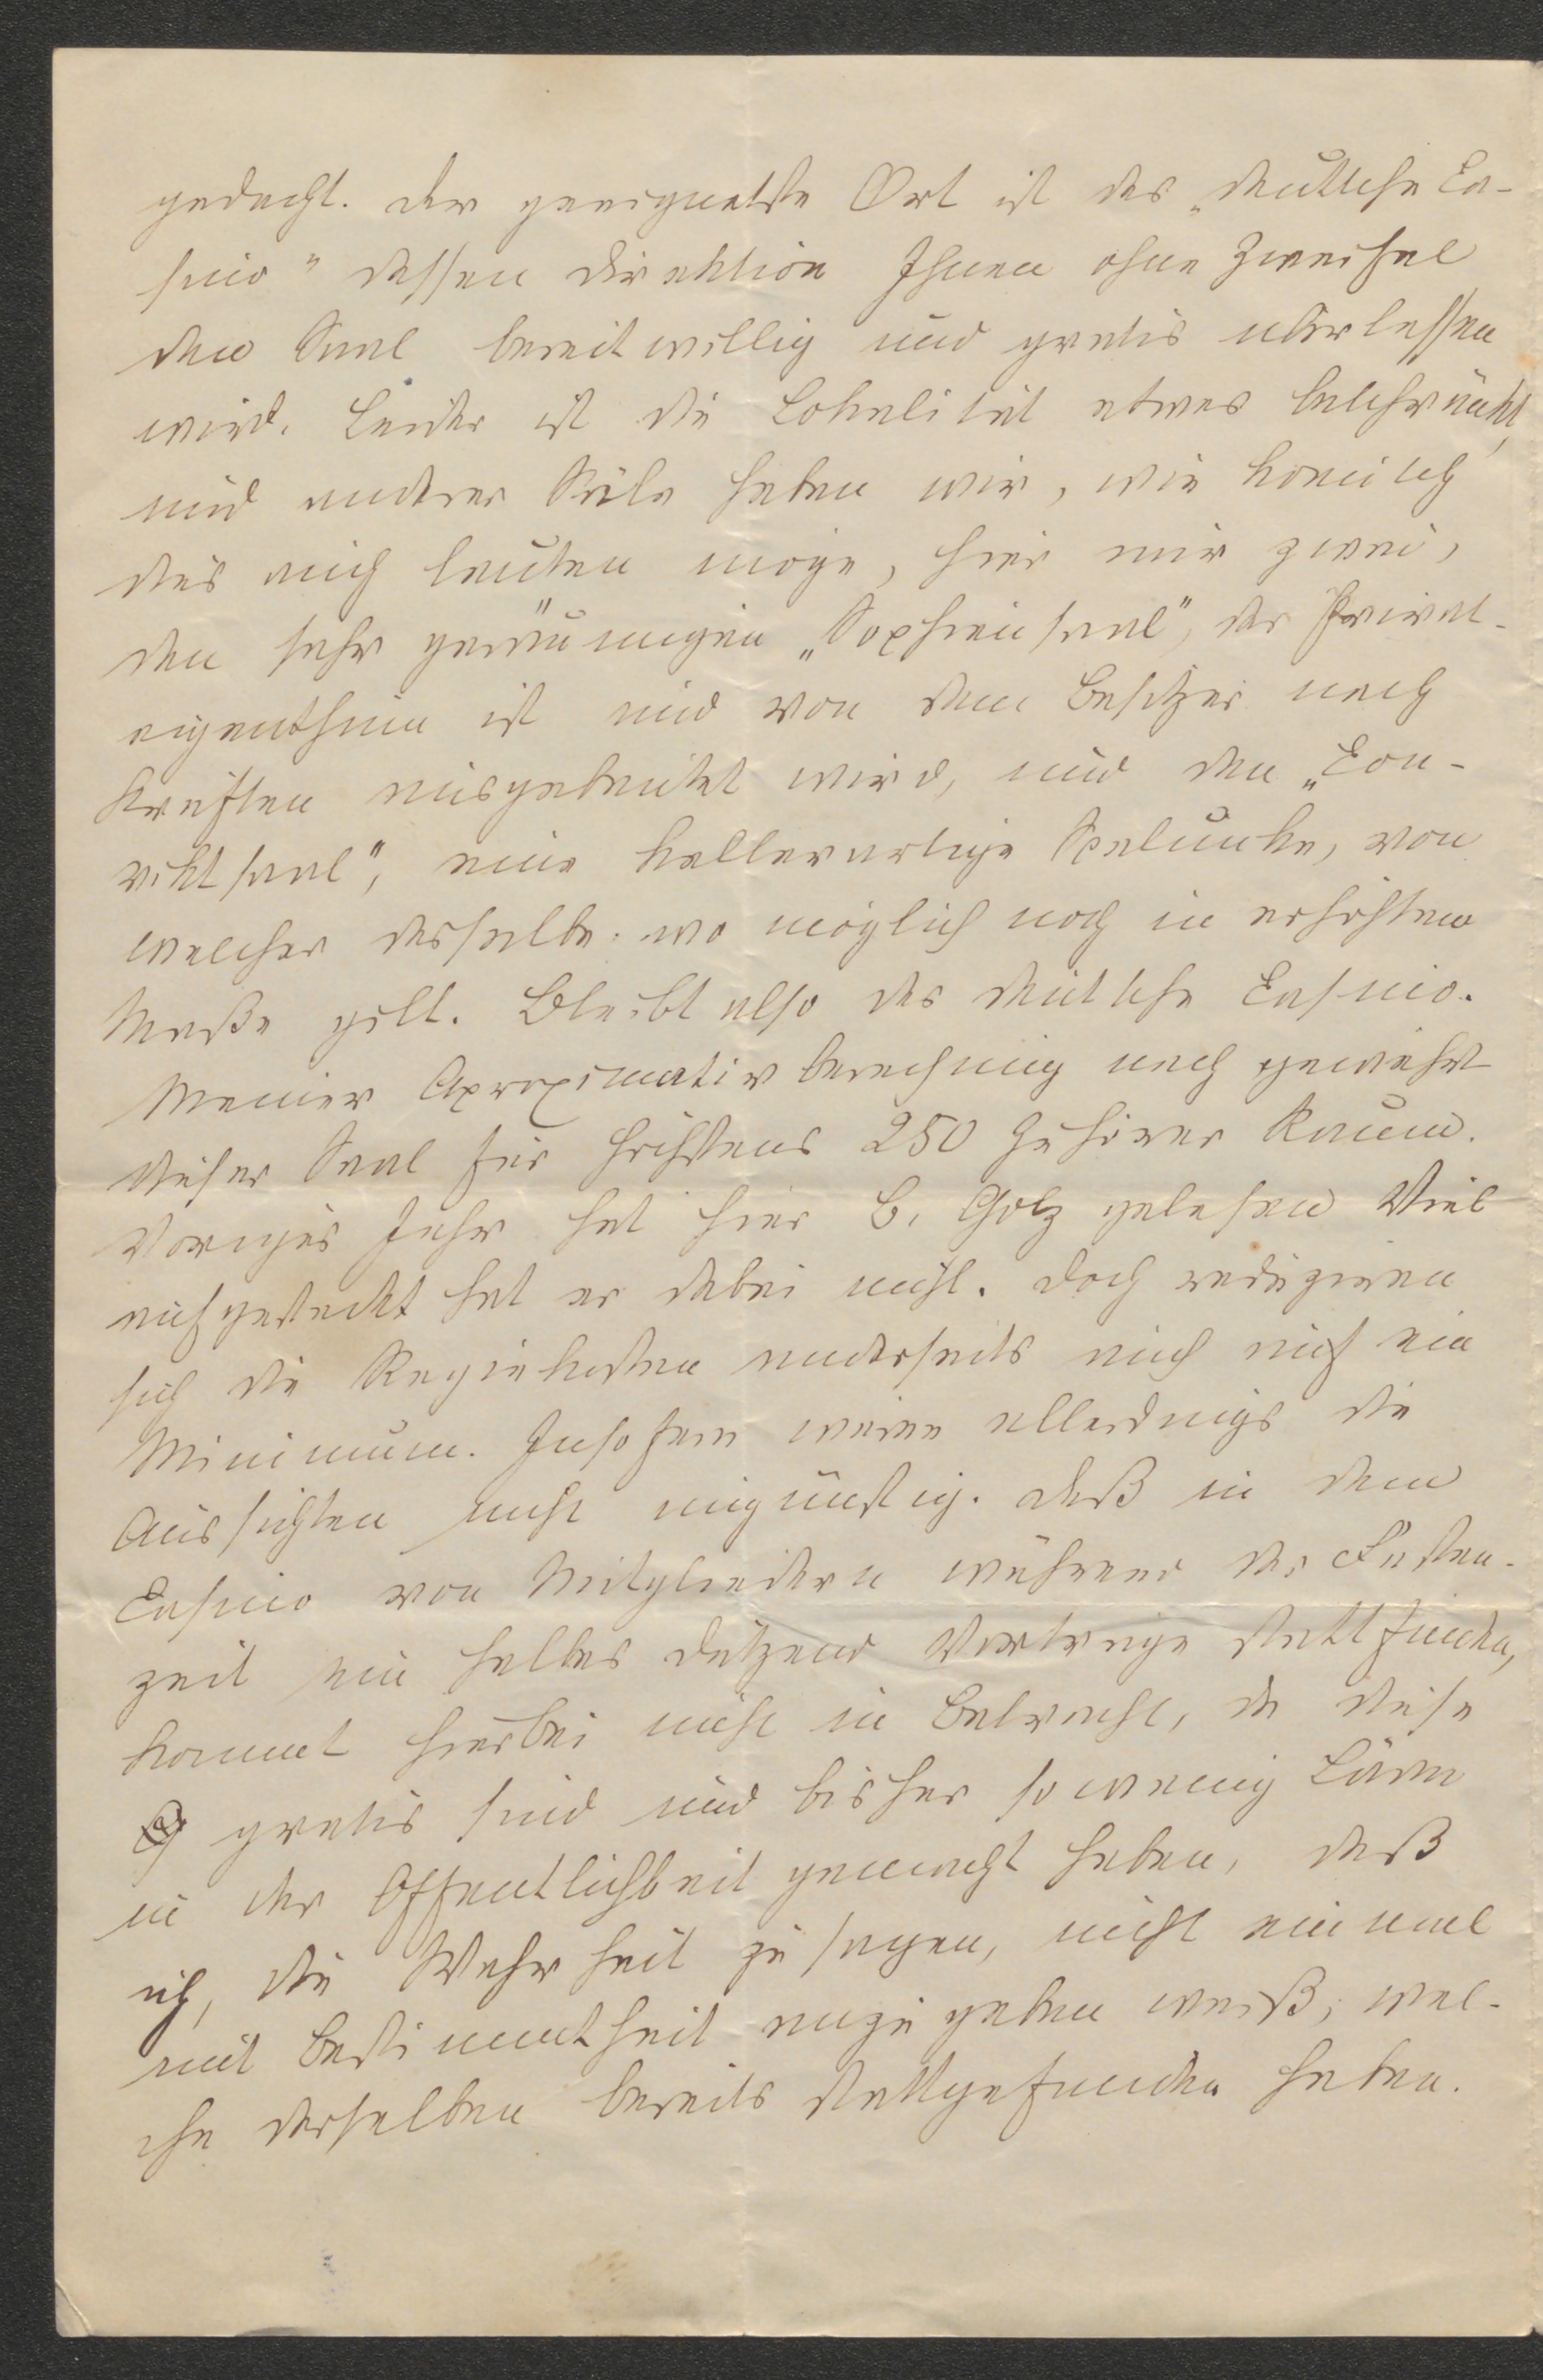 gedacht. Der geeignetste Ort ist das „deutsche Ca-
sino" dessen Direktion Ihnen ohne Zweifel
den Saal bereitwillig und gratis überlassen
wird. Leider ist die Lokalität etwas beschränkt,
und anderer Säle haben wir, wie komisch
das auch lauten möge, hier nur zwei,
den sehr geräumigen „Sophiensaal", der Privat-
eigenthum ist und von dem Besitzer nach
Kräften ausgebeutet wird, und den „Con-
viktsaal", eine kellerartige Spelunke, von
welcher dasselbe wo möglich noch in erhöhtem
Maße gilt. Bleibt also das deutsche Casino.
Meiner Aproximativberechnung nach gewährt
dieser Saal für höchstens 250 Zuhörer Raum.
Voriges Jahr hat hier B. Golz gelesen Viel
aufgesteckt hat er dabei nicht. Doch reduziren
sich die Regiekosten anderseits auch auf ein
Minimum. Insofern wären allerdings die
Aussichten nicht ungünstig. Daß in dem
Casino von Mitgliedern während der Fasten-
zeit ein halbes Dutzend Vorträge stattfinden,
kommt hierbei nicht in Betracht, da diese
gratis sind und bisher so wenig Lärm
in der Öffentlichkeit gemacht haben, daß
ich, die Wahrheit zu sagen, nicht einmal
mit Bestimmtheit anzugeben weiß, wel-
che derselben bereits stattgefunden haben.